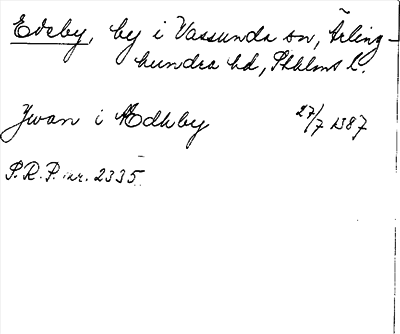 Edeby, by i Vassunda sn, Ärling-
hundra hd, Sthlms l.
Jwan i Ædhby 27/7 1387
S.R.P. nr. 2335